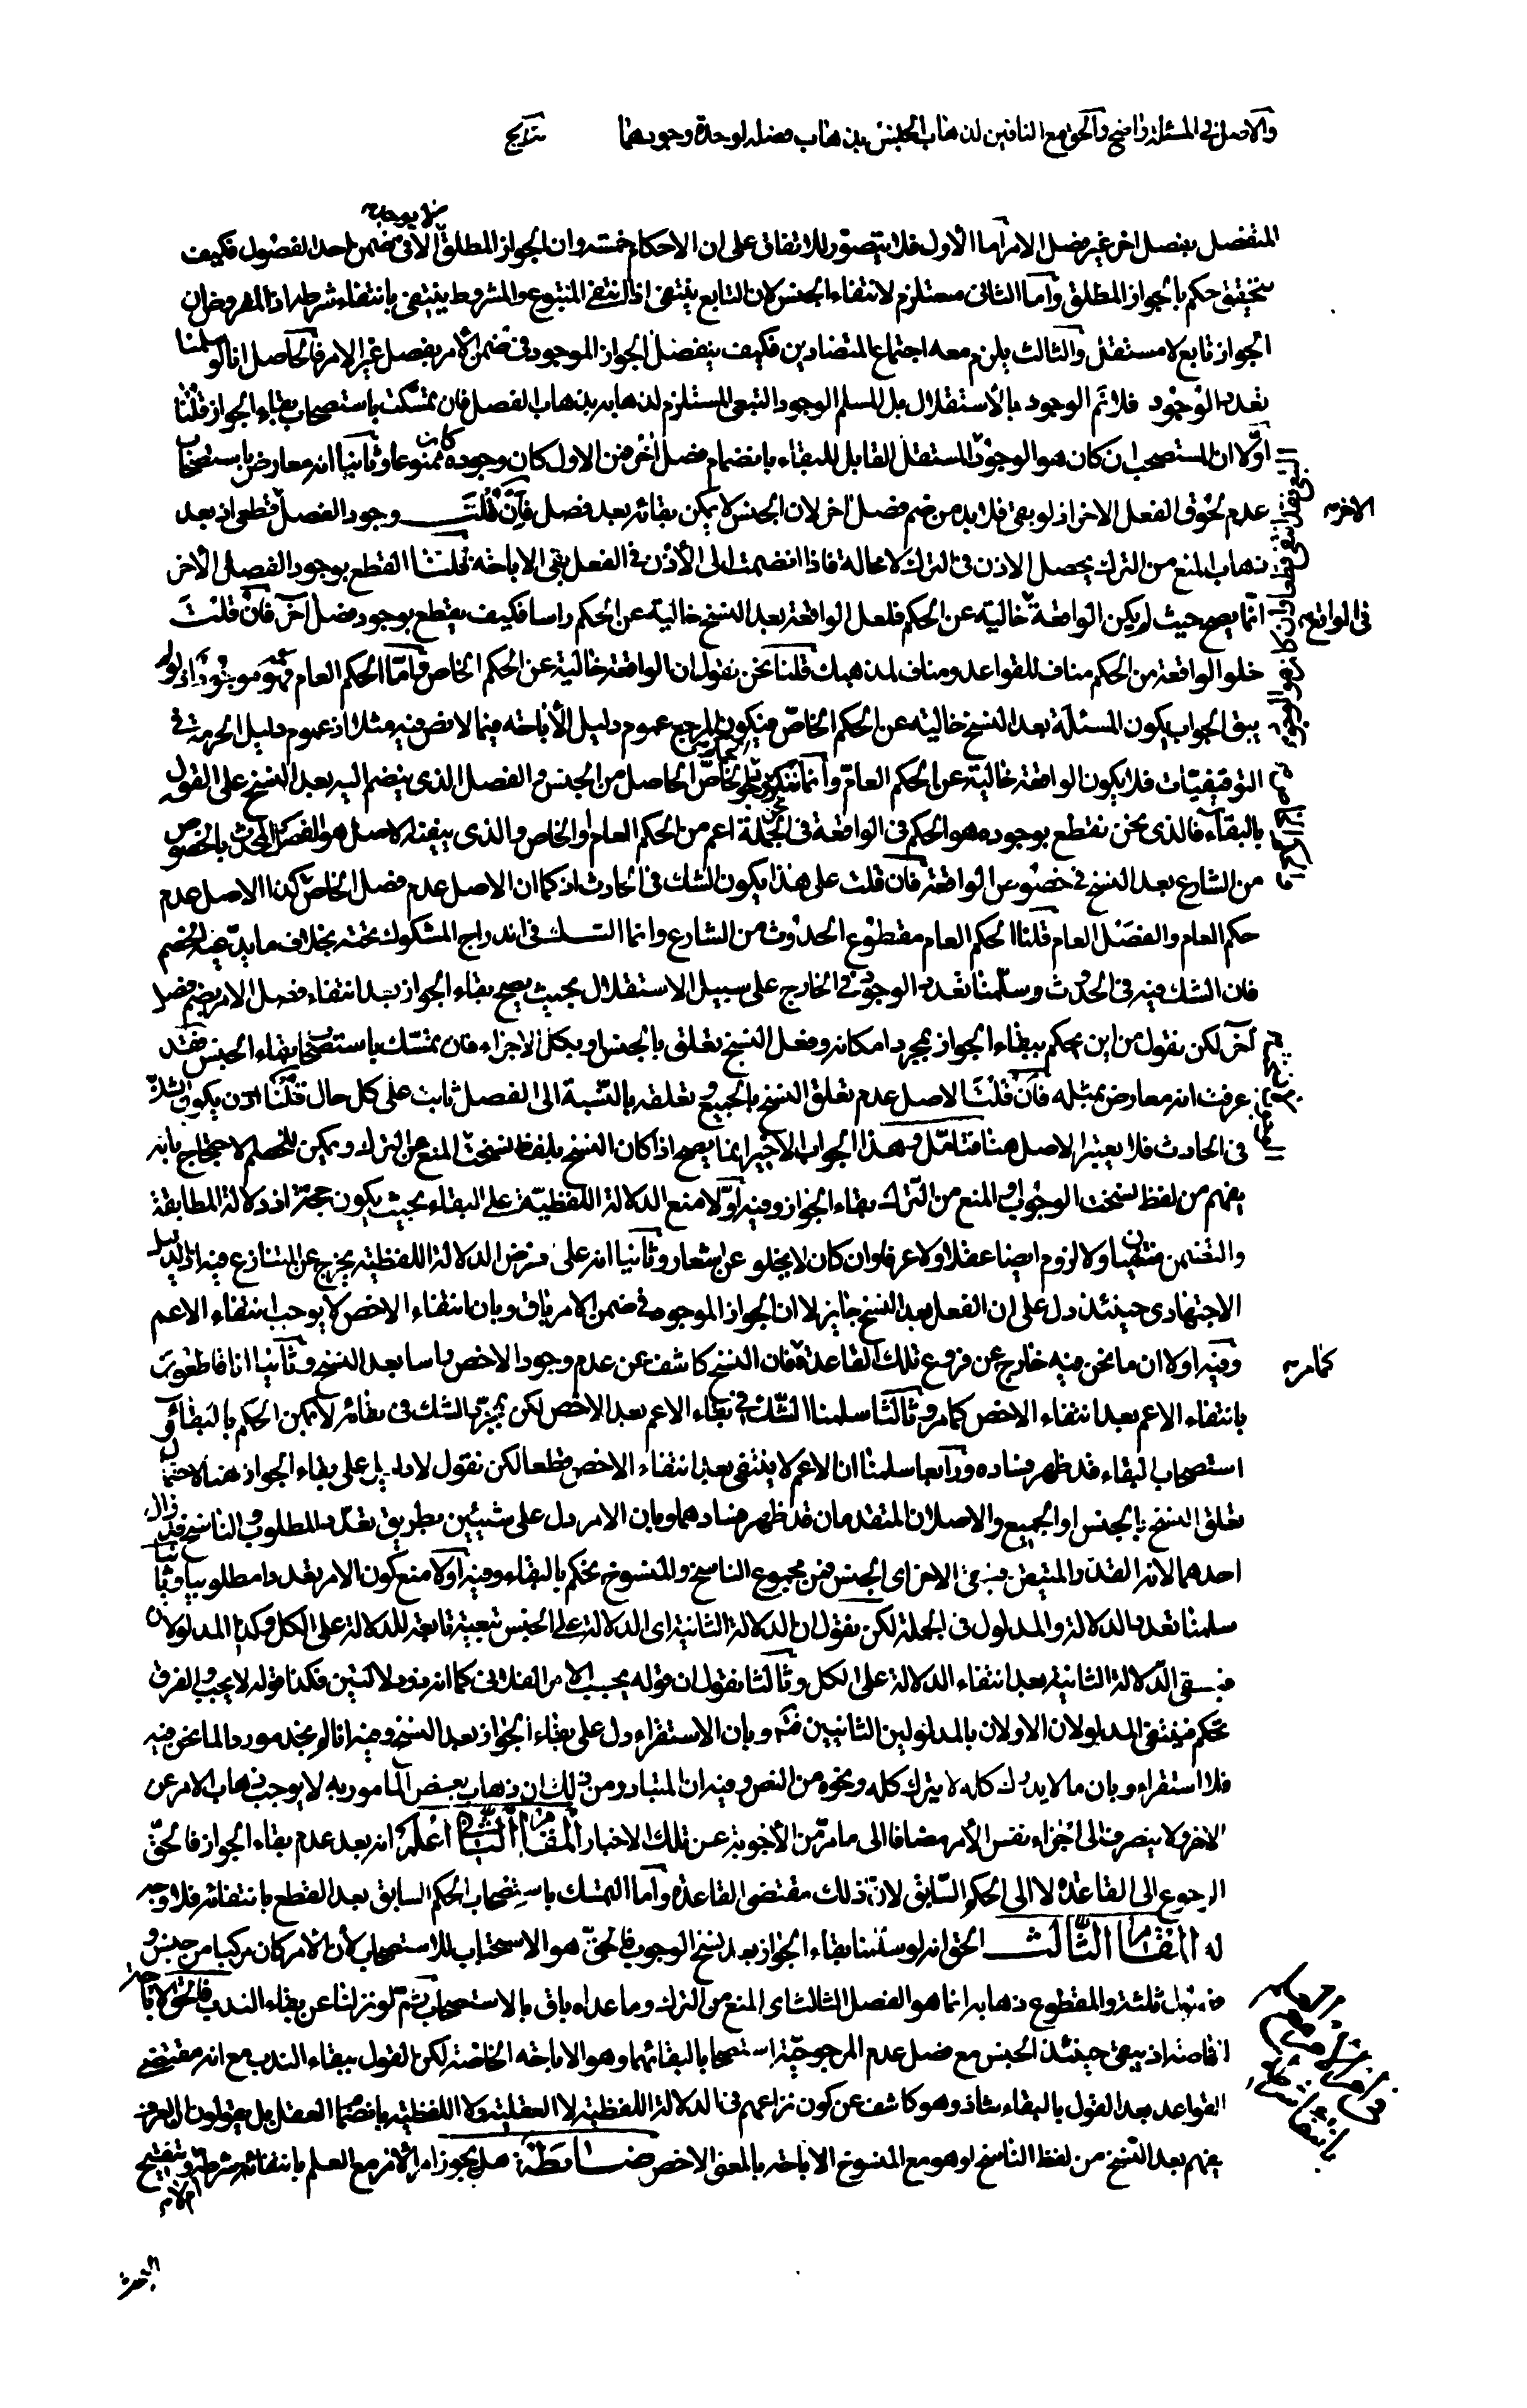 والاصل في المسئلة واضح والحق مع النافين لذهاب الجنس بذهاب فصله لوحدة وجودهما نتايج
المنفصل بفصل اخر غير فصل الامر اما الأول فلا يتصوّر للاتفاق على ان الاحكام خمسة وان الجواز المطلق لا يوجد الا في ضمن احد الفصول فكيف
يتحقق حكم بالجواز المطلق وأما الثاني مستلزم لانتفاء الجنس لان التابع ينتفى اذا انتفى المتبوع والمشروط ينتفى بانتفاء شرطه اذ المفروض ان
الجواز تابع لا مستقل والثالث يلزم معه اجتماع المتضادين فكيف ينفصل الجواز الموجود في ضمن الأمر بفصل غير الامر فالحاصل انا لو سلمنا
تعدد الوجود فلا ثم الوجود بالأستقلال بل المسلم الوجود التبعى المستلزم لذهابه بذهاب الفصل فان تمسّكت باستصحاب بقاء الجواز قلنا
اوّلا ان المستصحب ان كان هو الوجود المستقل القابل للبقاء بانضمام فصل اخر فمن الاول كان وجوده ممنوعا وثانيا انه معارض باستصحاب
عدم لحوق الفصل الاخر اذ لو بقى فلا بد من ضم فصل اخر لان الجنس لا يمكن بقائه بعد فصل فان قلت وجود الفصل قطعى اذ بعد
ذهاب المنع من الترك يحصل الاذن في الترك لا محالة فاذا انضمت الى الأذن في الفعل بقى الاباحة قلنا القطع بوجود الفصل الأخر
انّما يصح حيث لم يكن الواقعة خالية عن الحكم فلعل الواقعة بعد النسخ خالية عن الحكم راسا فكيف يقطع بوجود فصل آخر فان قلت
خلو الواقعة من الحكم مناف للقواعد ومناف لمذهبك قلنا نحن نقول ان الواقعة خالية عن الحكم الخاص وامّا الحكم العام فهو موجود اذ لو لم
يبق الجواب يكون المسئلة بعد النسخ خالية عن الحكم الخاصّ فيكون المرجع عموم دليل الأباحة فيما لا نص فيه مثلا اذ عموم دليل الحرمة في
التوقيفيّات فلا يكون الواقعة خالية عن الحكم العامّ وانما ننكر الخاصّ الحاصل من الجنس والفصل الذى ينضم اليه بعد النسخ على القول
بالبقاء فالذى نحن نقطع بوجوده هو الحكم في الواقعة في الجملة اعم من الحكم العام او الخاص والذى ينفيه الاصل هو الفصل الحادث بالخصوص
من الشارع بعد النسخ في خصوص الواقعة فان قلت على هذا يكون الشك في الحادث اذ كما ان الاصل عدم فصل الخاص كذا الاصل عدم
حكم العام والفصل العام قلنا الحكم العام مقطوع الحدوث من الشارع وانما الشك في اندراج المشكوك تحته بخلاف ما يدّعيه الخصم
فان الشك فيه في الحدوث وسلّمنا تعدد الوجود في الخارج على سبيل الاستقلال بحيث يصح بقاء الجواز بعد انتفاء فصل الامر بضم فصل
آخر لكن نقول من اين يحكم ببقاء الجواز بمجرد امكانه ولعل النسخ تعلق بالجنس او بكل الاجزاء فان تمسّك باستصحاب بقاء الجنس فقد
عرفت انه معارض بمثله فان قلت الاصل عدم تعلق النسخ بالجميع وتعلقه بالنسبة الى الفصل ثابت على كل حال قلنا اذن يكون الشك
في الحادث فلا يعتبر الاصل هنا فتامّل وهذا الجواب الاخير انما يصح اذا كان النسخ بلفظ نسخت المنع عن الترك ويمكن للخصم الاحتجاج بانه
يفهم من لفظ نسخت الوجوب او المنع من التّرك بقاء الجواز وفيه أوّلا منع الدلالة اللفظيّة على البقاء بحيث يكون حجة اذ دلالة المطابقة
والتضمن منتفيان ولا لزوم ايضا عقلا ولا عرفا وان كان لا يخلو عن اشعار وثانيا انه على فرض الدلالة اللفظية يخرج عن المتنازع فيه اذ الدليل
الاجتهادى حينئذ دل على ان الفعل بعد النسخ جايز لا ان الجواز الموجود في ضمن الامر باق وبان انتفاء الاخص لا يوجب انتفاء الاعم
وفيه اولا ان ما نحن فيه خارج عن فروع تلك القاعدة فان النسخ كاشف عن عدم وجود الاخص راسا بعد النسخ وثانيا انا قاطعون
بانتفاء الاعم بعد انتفاء الاخص كما مر وثالثا سلمنا الشّك في بقاء الاعم بعد الاخص لكن بمجرد الشك في بقائه لا يمكن الحكم بالبقاء و
استصحاب البقاء قد ظهر فساده ورابعا سلمنا ان الاعم لا ينتفى بعد انتفاء الاخص قطعا لكن نقول لا دليل على بقاء الجواز هنا لاحتمال
تعلق النسخ بالجنس او الجميع والاصلان المتقدمان قد ظهر فسادهما وبان الامر دل على شيئين بطريق تعدّد المطلوب والناسخ قد زال
احدهما لانه القدر المتيقن فبقى الاخر اى الجنس فمن مجموع الناسخ والمنسوخ نحكم بالبقاء وفيه اولا منع كون الامر تعدد المطلوبيا وثانيا
سلمنا تعدد الدلالة والمدلول في الجملة لكن نقول ان الدلالة الثانية اى الدلالة على الجنس تبعية تابعة للدلالة على الكل وكذا المدلولان
فتنتفى الدّلالة الثانية بعد انتفاء الدلالة على الكل وثالثا نقول ان قوله يجب الامر الفلانى كما انه ذو دلالتين فكذا قوله لا يجب والفرق
تحكم فينتفى المدلولان الاولان بالمدلولين الثانيين فتم وبان الاستقراء دل على بقاء الجواز بعد النسخ وفيه انا لم نجد موردا لما نحن فيه
فلا استقراء وبان ما لا يدرك كله لا يترك كله ونحوه من النص وفيه ان المتبادر من ذلك ان ذهاب بعض المامور به لا يوجب ذهاب الامر عن
الاخر ولا ينصرف الى اجزاء نفس الأمر مضافا الى ما مرّ من الأجوبة عن تلك الاخبار المقام الثانى اعلم انه بعد عدم بقاء الجواز فالحقّ
الرجوع الى القاعدة لا الى الحكم السّابق لانّ ذلك مقتضى القاعدة وأما التمسك باستصحاب الحكم السابق بعد القطع بانتفائه فلا وجه
له المقام الثّالث الحق انه لو سلمنا بقاء الجواز بعد نسخ الوجوب فالحقّ هو الاستحباب للاستصحاب لأن الأمر كان مركبا من جنس و
فصول ثلثة والمقطوع ذهابه انما هو الفصل الثالث اى المنع من الترك وما عداه باق بالاستصحاب ثمّ لو نزلنا عن بقاء الندب فالحق الاباحة
الخاصة اذ يبقى حينئذ الجنس مع فصل عدم المرجوحيّة استصحابا لبقائهما وهو الاباحة الخاصة لكن القول ببقاء الندب مع انه مقتضى
القواعد بعد القول بالبقاء شاذ وهو كاشف عن كون نزاعهم في الدلالة اللفظية لا العقلية ولا اللفظية بانضمام العقل بل يقولون ان العرف
يفهم بعد النّسخ من لفظ الناسخ او هو مع المنسوخ الاباحة بالمعنى الاخص ضابطة هل يجوز امر الآمر مع العلم بانتفاء شرطه وتنقيح
الاخر
في الواقع
كما مر